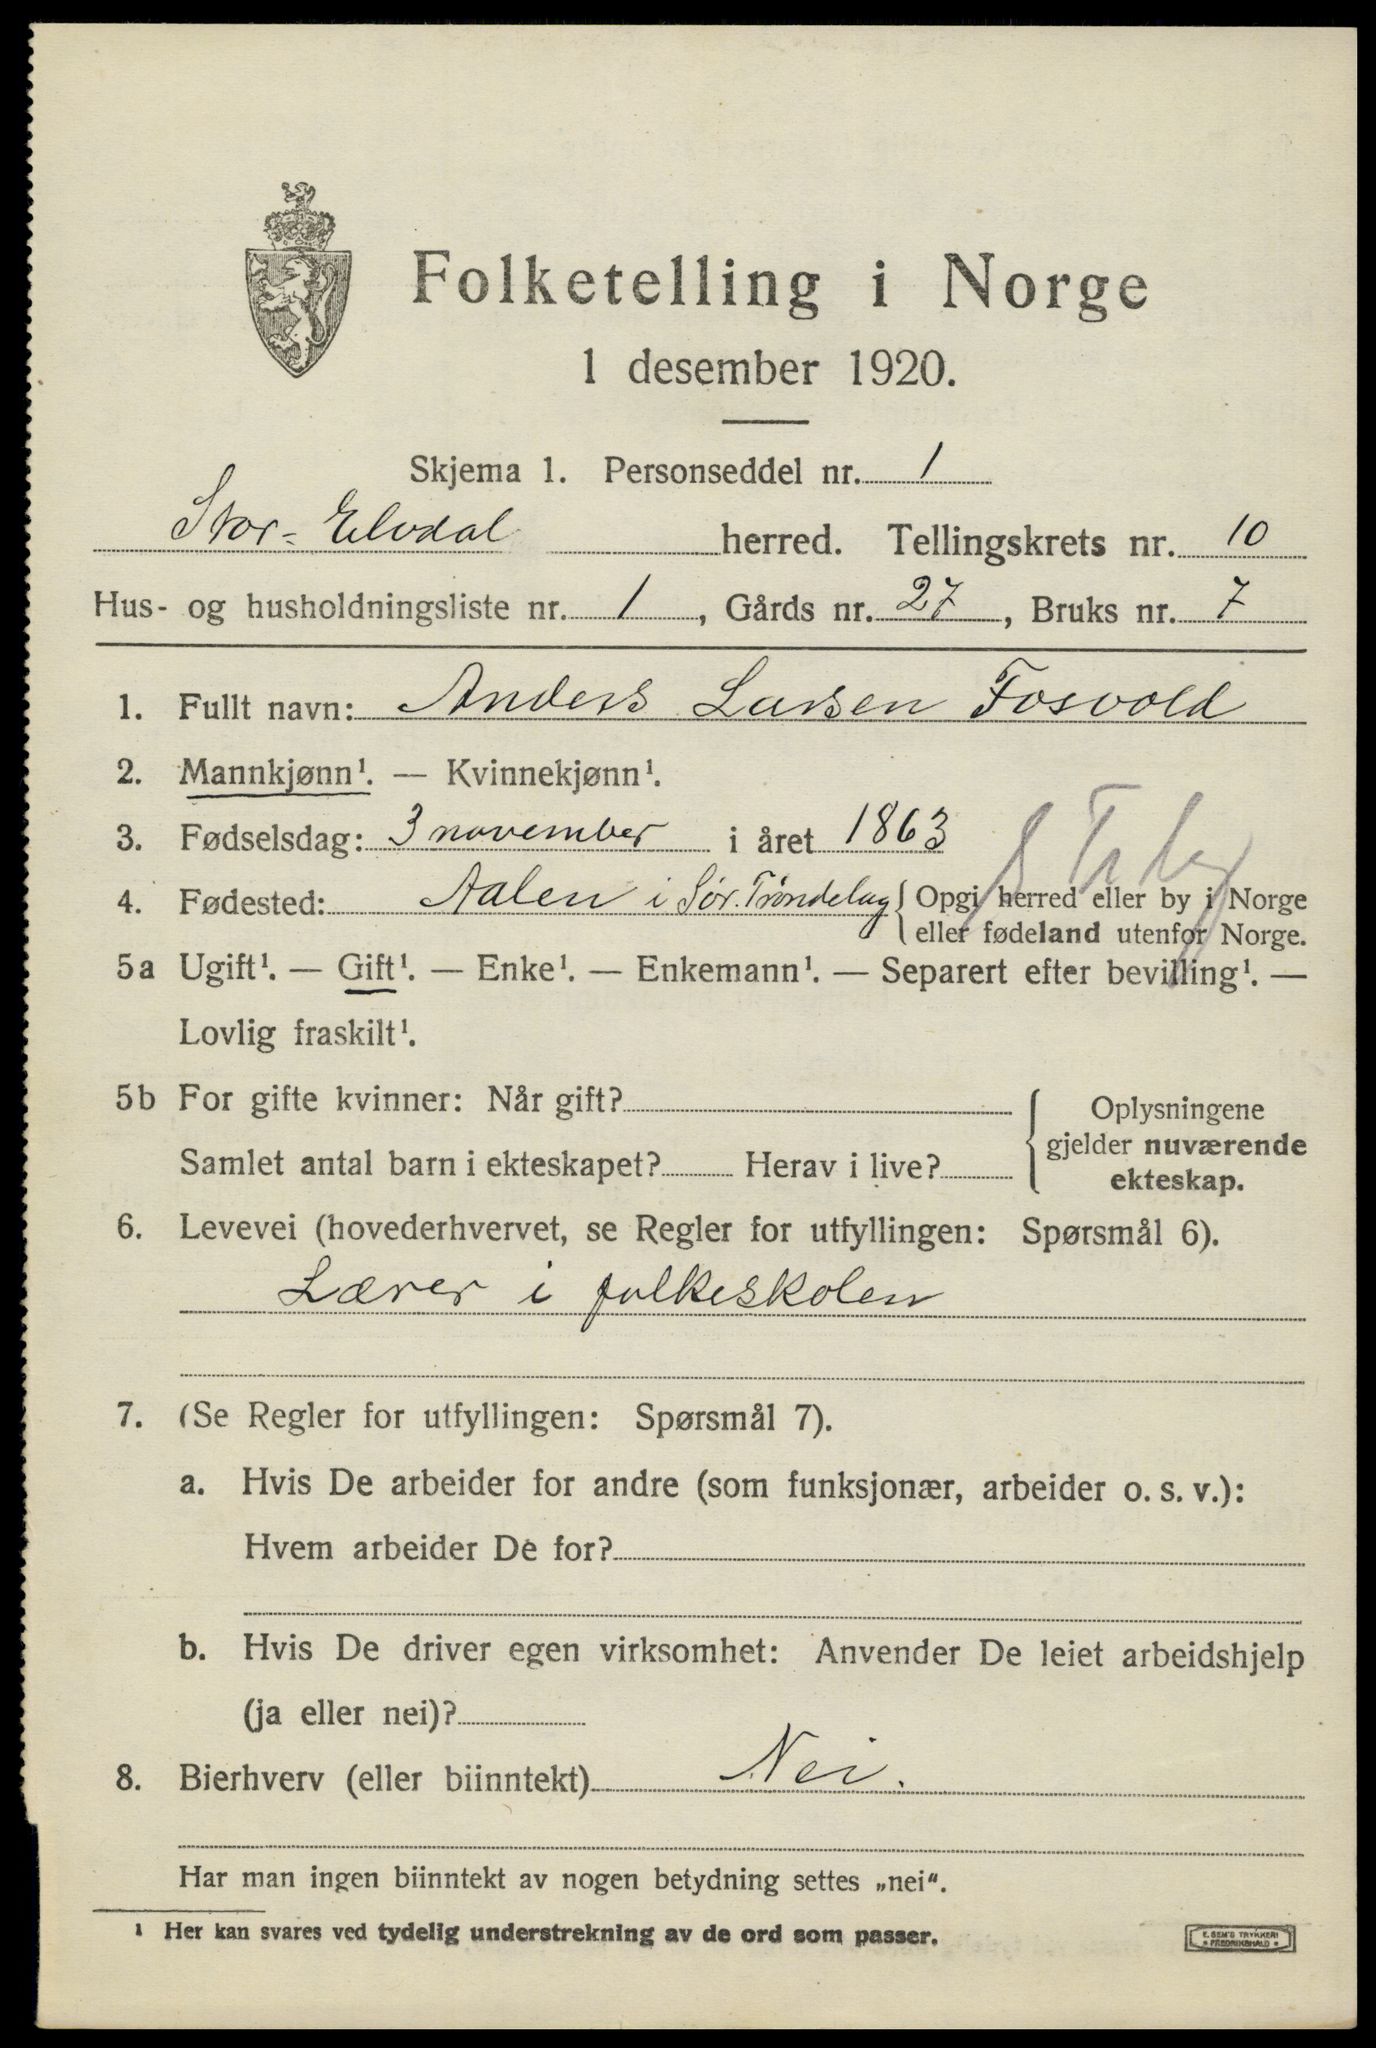 Folketelling i Norge
1 desember 1920.
Skjema 1. Personseddel nr. 1
Stor-Elvdal herred. Tellingskrets nr. 10
Hus- og husholdningsliste nr. 1, Gårds nr. 27, Bruks nr. 7
1. Fullt navn: Anders Larsen Fosvold
2. Mannkjønn¹. — Kvinnekjønn¹.
3. Fødselsdag: 3 november i året 1863
4. Fødested: Aalen i Sør. Trøndelag { Opgi herred eller by i Norge
eller fødeland utenfor Norge.
5a Ugift¹. — Gift¹. — Enke¹. — Enkemann¹. — Separert efter bevilling¹. —
Lovlig fraskilt¹.
5b For gifte kvinner: Når gift?
Samlet antal barn i ekteskapet? Herav i live?
{ Oplysningene
gjelder nuværende
ekteskap.
6. Levevei (hovederhvervet, se Regler for utfyllingen: Spørsmål 6).
Lærer i folkeskolen
7. (Se Regler for utfyllingen: Spørsmål 7).
a. Hvis De arbeider for andre (som funksjonær, arbeider o. s. v.):
Hvem arbeider De for?
b. Hvis De driver egen virksomhet: Anvender De leiet arbeidshjelp
(ja eller nei)?
8. Bierhverv (eller biinntekt) Nei.
Har man ingen biinntekt av nogen betydning settes „nei".
¹ Her kan svares ved tydelig understrekning av de ord som passer.
E. SEM'S TRYKKERI
* FREDRIKSHALD *